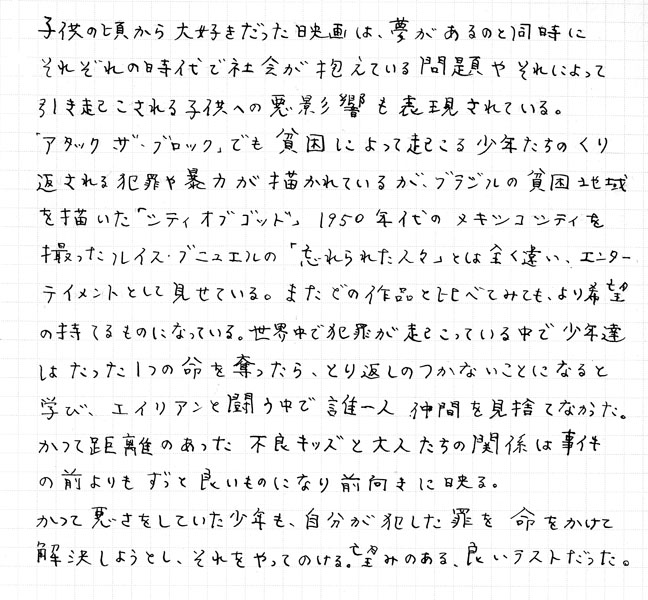 子供の頃から大好きだった映画は、夢があるのと同時に
それぞれの時代で社会が抱えている問題やそれによって
引き起こされる子供への悪影響も表現されている。
「アタック ザ・ブロック」でも貧困によって起こる少年たちのくり
返される犯罪や暴力が描かれているが、ブラジルの貧困地域
を描いた「シティオブゴッド」 1950年代のメキシコシティを
撮ったルイス・ブニュエルの「忘れられた人々」とは全く違い、エンター
テイメントとして見せている。またどの作品と比べてみても、より希望
の持てるものになっている。世界中で犯罪が起こっている中で少年達
はたった1つの命を奪ったら、とり返しのつかないことになると
学び、エイリアンと闘う中で誰一人仲間を見捨てなかった。
かつて距離のあった不良キッズと大人たちの関係は事件
の前よりもずっと良いものになり前向きに映る。
かつて悪さをしていた少年も、自分が犯した罪を命をかけて
解決しようとし、それをやってのける。望みのある、良いラストだった。